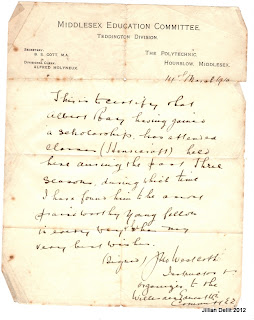 MIDDLESEX EDUCATION COMMITTEE.
TEDDINGTON DIVISION.
SECRETARY:
B. S. GOTT, M.A.
DIVISIONAL CLERK:
ALFRED HOLYNEUX.
THE POLYTECHNIC,
HOUNSLOW, MIDDLESEX.
14th March 1914
This is to certify that
Albert Bary having gained
a scholarship, has attended
classes (Homecraft) held
here during the past Three
Seasons, during which time
I have found him to be a most
praiseworthy young fellow
in every way. He has my
very best wishes.
(Signed)
Instructor &
organizer to the
Jillian Dellit 2012